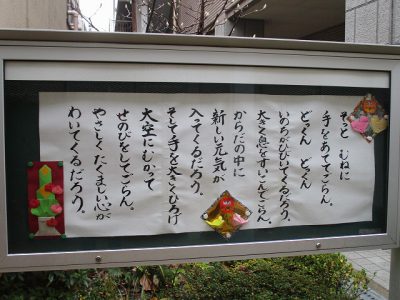 そっと むねに
手をあててごらん。
どっくん どっくん
いのちがひびいてくるだろう。
大きく息をすいこんでごらん。
からだの中に
新しい元気が
入ってくるだろう。
そして手を大きくひろげ
大空にむかって
せのびをしてごらん。
やさしくたくましい心が
わいてくるだろう。